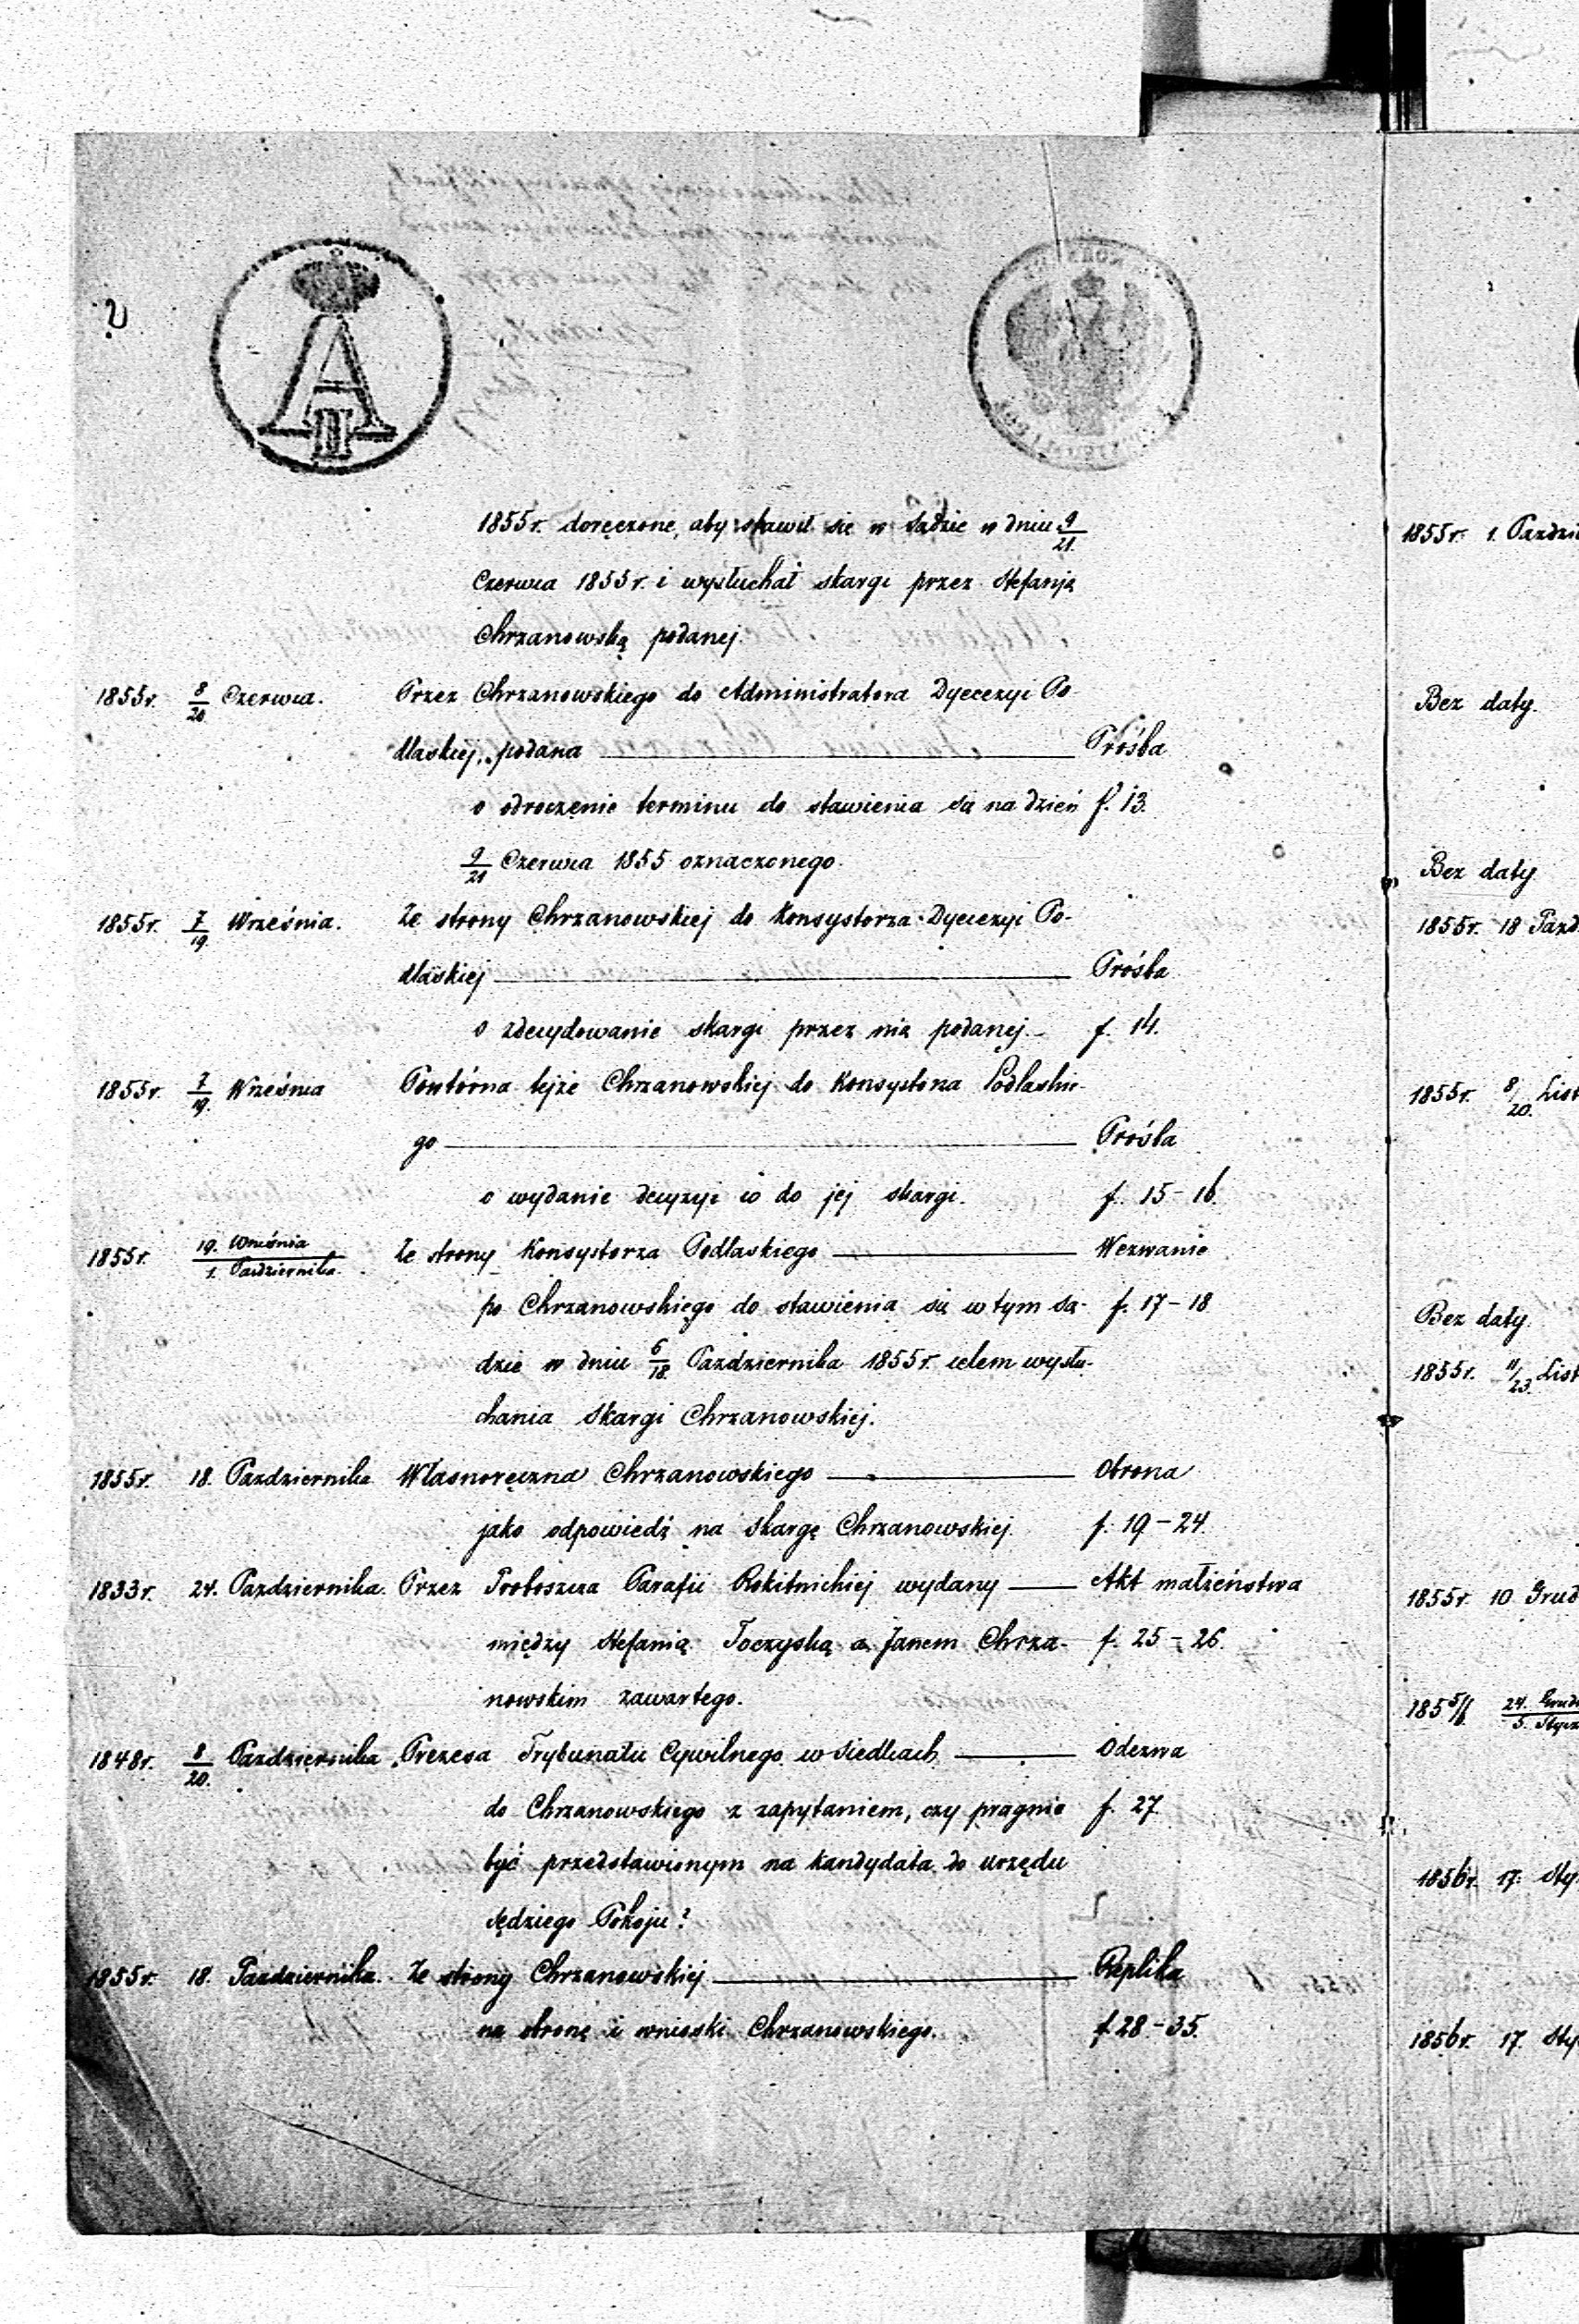 2
A II
1855r. doręczone, aby stawił się w Sądzie w dniu 9/21.
Czerwca 1855r. i wysłuchał skargi przez Stefanją
Chrzanowską podanej.
1855r. 8/20 Czerwca. Przez Chrzanowskiego do Administratora Dyecezyi Po-
dlaskiej, podana — Prośba
o odroczenie terminu do stawienia się na dzień f. 13.
9/21 Czerwca 1855 oznaczonego.
1855r. 7/19. Września. Ze strony Chrzanowskiej do Konsystorza Dyecezyi Po-
dlaskiej — Prośba
o zdecydowanie skargi przez nią podanej.- f. 14.
1855r. 7/19. Września Powtórna tejże Chrzanowskiej do Konsystorza Podlaskie-
go — Prośba
o wydanie decyzyi co do jej skargi. f. 15-16.
1855r. 19. Września/1. Października. Ze strony Konsystorza Podlaskiego — Wezwanie
po Chrzanowskiego do stawienia się w tym Są- f. 17-18
dzie w dniu 6/18. Października 1855r. celem wysłu-
chania Skargi Chrzanowskiej.
1855r. 18. Października Własnoręczna Chrzanowskiego — Obrona
jako odpowiedź na Skargę Chrzanowskiej. f. 19-24.
1833r. 24. Października. Przez Proboszcza Parafii Rokitnickiej wydany — Akt małżeństwa
między Stefanią Toczyską a Janem Chrza- f. 25-26.
nowskim zawartego.
1848r. 8/20. Października Prezesa Trybunału Cywilnego w Siedlcach — Odezwa
do Chrzanowskiego z zapytaniem, czy pragnie f. 27.
być przedstawionym na kandydata do urzędu
Sędziego Pokoju?
1855r. 18. Października. Ze strony Chrzanowskiej — Replika
na obronę i wnioski Chrzanowskiego. f. 28-35.
1855r. 1. Paździ
Bez daty.
Bez daty
1855r. 18 Paźd
1855r. 8/20. List
Bez daty.
1855r. 11/23. List
1855r. 10 Grud
1855/6 24. Grud/5. Stycz
1856r. 17. Sty
1856r. 17. Sty